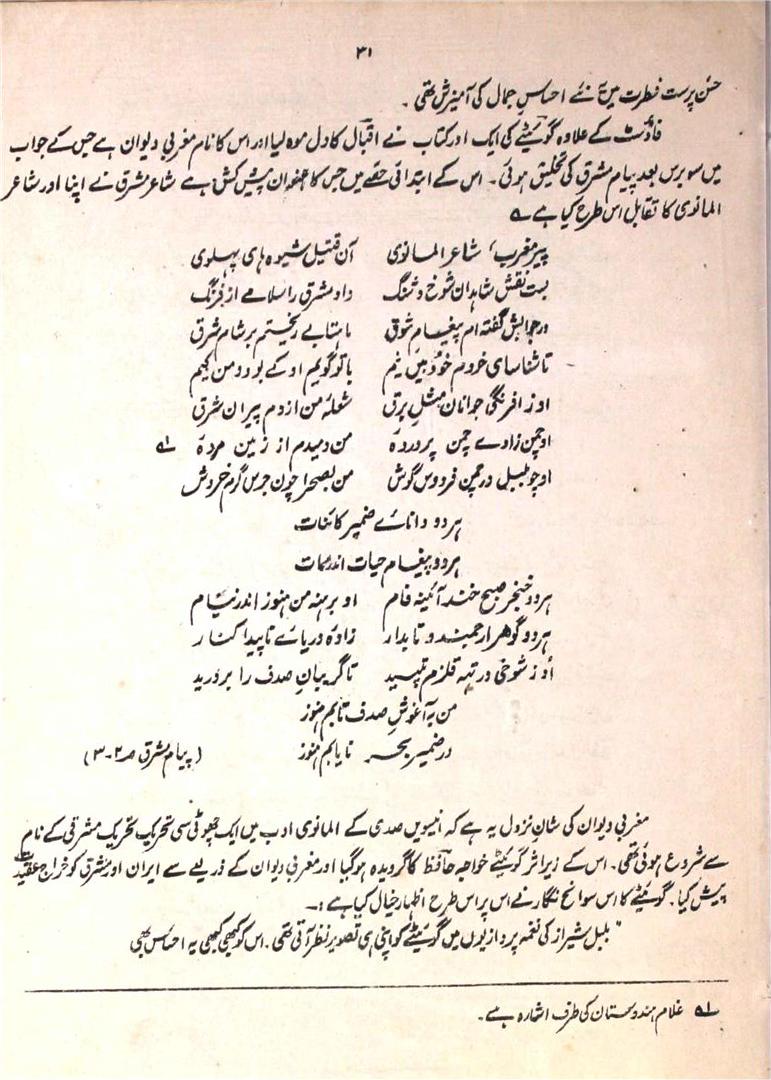 ۳۱
حسن پرست فطرت میں نئے احساسِ جمال کی آمیزش تھی ۔
فاؤسٹ کے علاوہ گوئٹے کی ایک اور کتاب نے اقبال کا دل موہ لیا اور اس کا نام مغربی دیوان ہے جس کے جواب
میں سو برس بعد پیام مشرق کی تخلیق ہوئی۔ اس کے ابتدائی حصے میں جس کا عنوان پیش کش ہے شاعر مشرق نے اپنا اور شاعر
المانوی کا تقابل اس طرح کیا ہے ؎
پیر مغرب، شاعر المانوی آن قتیل شیوہ ہای پہلوی
بست نقش شاہدان شوخ و شنگ داد مشرق را سلامے از فرنگ
در جوابش گفتہ ام پیغام شوق ماہتابے ریختم بر شام شرق
تا شناسای خودم خود بیں نیم با تو گویم او کے بود و من کیم
او ز افرنگی جوانان مثل برق شعلۂ من از دم پیران شرق
او چمن زادے چمن پروردہ من دمیدم از زمین مردۂ ؎۱
او چو بلبل در چمن فردوس گوش من بصحرا چون جرس گرم خروش
ہر دو دانائے ضمیر کائنات
ہر دو پیغام حیات اندر ممات
ہر دو خنجر صبح خند آئینہ فام او برہنہ من ہنوز اندر نیام
ہر دو گوھر ارجمند و تابدار زادۂ دریائے ناپیدا کنار
او ز شوخی در تہہ قلزم تپید تا گریبان صدف را بر درید
من بہ آغوشِ صدف تابم ہنوز
در ضمیر بحر نایابم ہنوز (پیام مشرق صہ ۲-۳)
مغربی دیوان کی شانِ نزول یہ ہے کہ انیسویں صدی کے المانوی ادب میں ایک چھوٹی سی تحریک تحریک مشرقی کے نام
سے شروع ہوئی تھی۔ اس کے زیر اثر گوئٹے خواجہ حافظ کا گرویدہ ہو گیا اور مغربی دیوان کے ذریعے سے ایران اور مشرق کو خراج عقیدت
پیش کیا۔ گوئٹے کا اس سوانح نگار نے اس پر اس طرح اظہار خیال کیا ہے :۔
"بلبل شیراز کی نغمہ پردازیوں میں گوئٹے کو اپنی ہی تصویر نظر آتی تھی۔ اس کو کبھی کبھی یہ احساس بھی
؎۱ غلام ہندوستان کی طرف اشارہ ہے۔